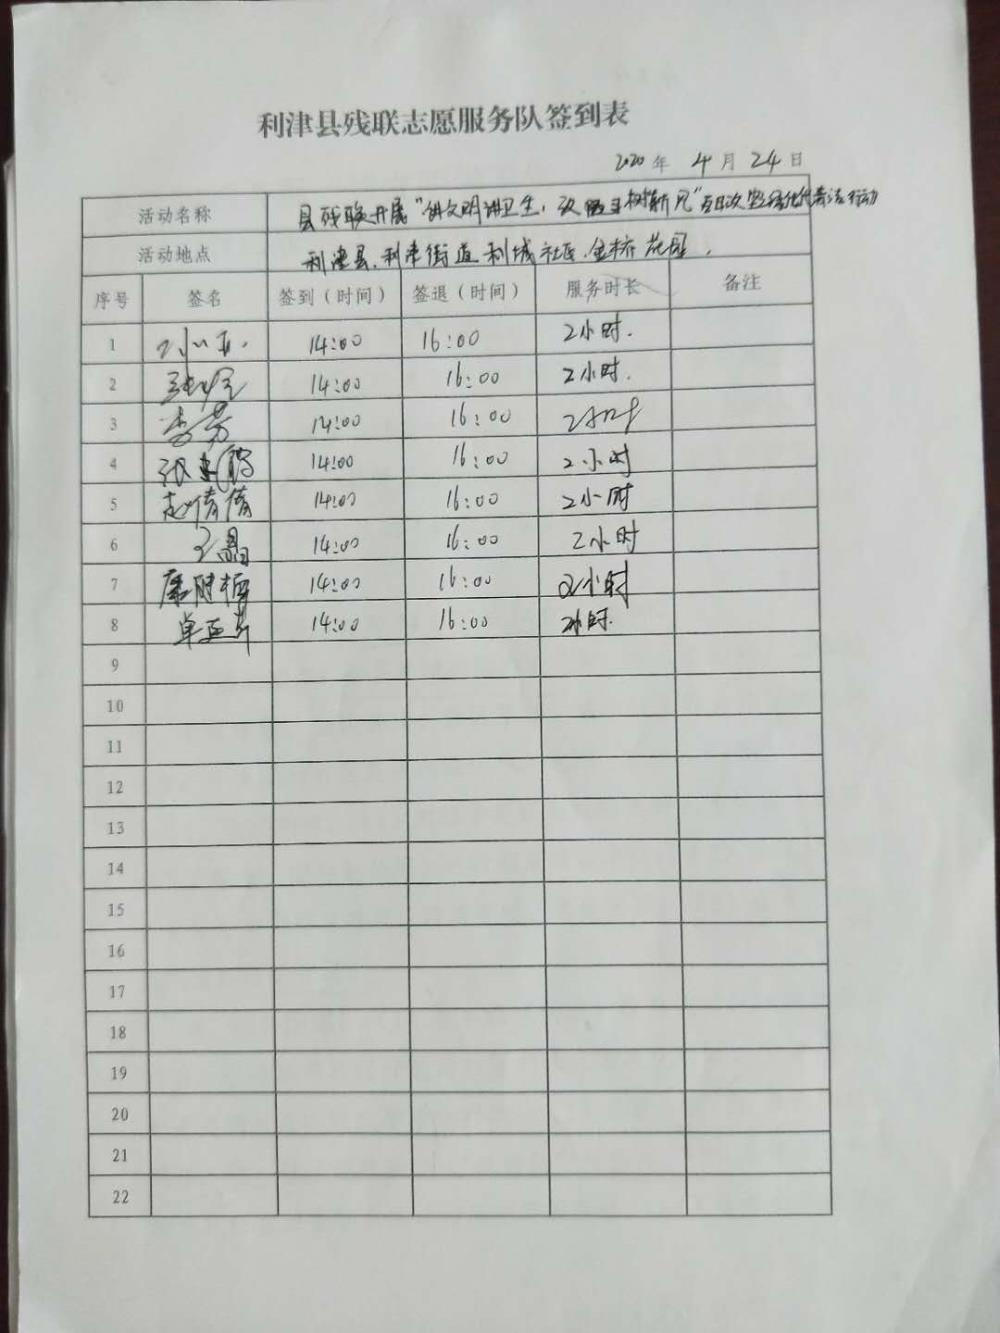 利津县残联志愿服务队签到表
2020年 4月24日
活动名称 县残联开展"讲文明讲卫生,改陋习树新风"
活动地点 利津县.利津街道利城社区.金桥花园.
序号 签名 签到（时间） 签退（时间） 服务时长 备注
1 14:00 16:00 2小时.
2 14:00 16:00 2小时.
3 李芳 14:00 16:00 2小时
4 14:00 16:00 2小时
5 赵倩倩 14:00 16:00 2小时
6 王晶 14:00 16:00 2小时
7 14:00 16:00 2小时
8 14:00 16:00 2小时.
9
10
11
12
13
14
15
16
17
18
19
20
21
22